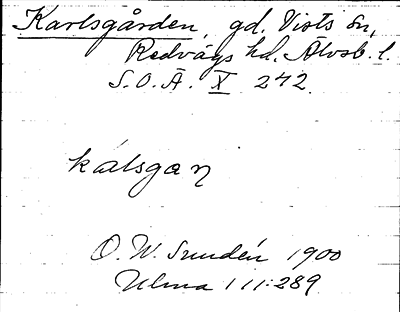 Karlsgården, gd. Vists sn,
Redvägs hd. Älvsb. l.
S.O.Ä. X 242.
kálsgaŋ
O. W. Sundén 1900
Ulma 111:289